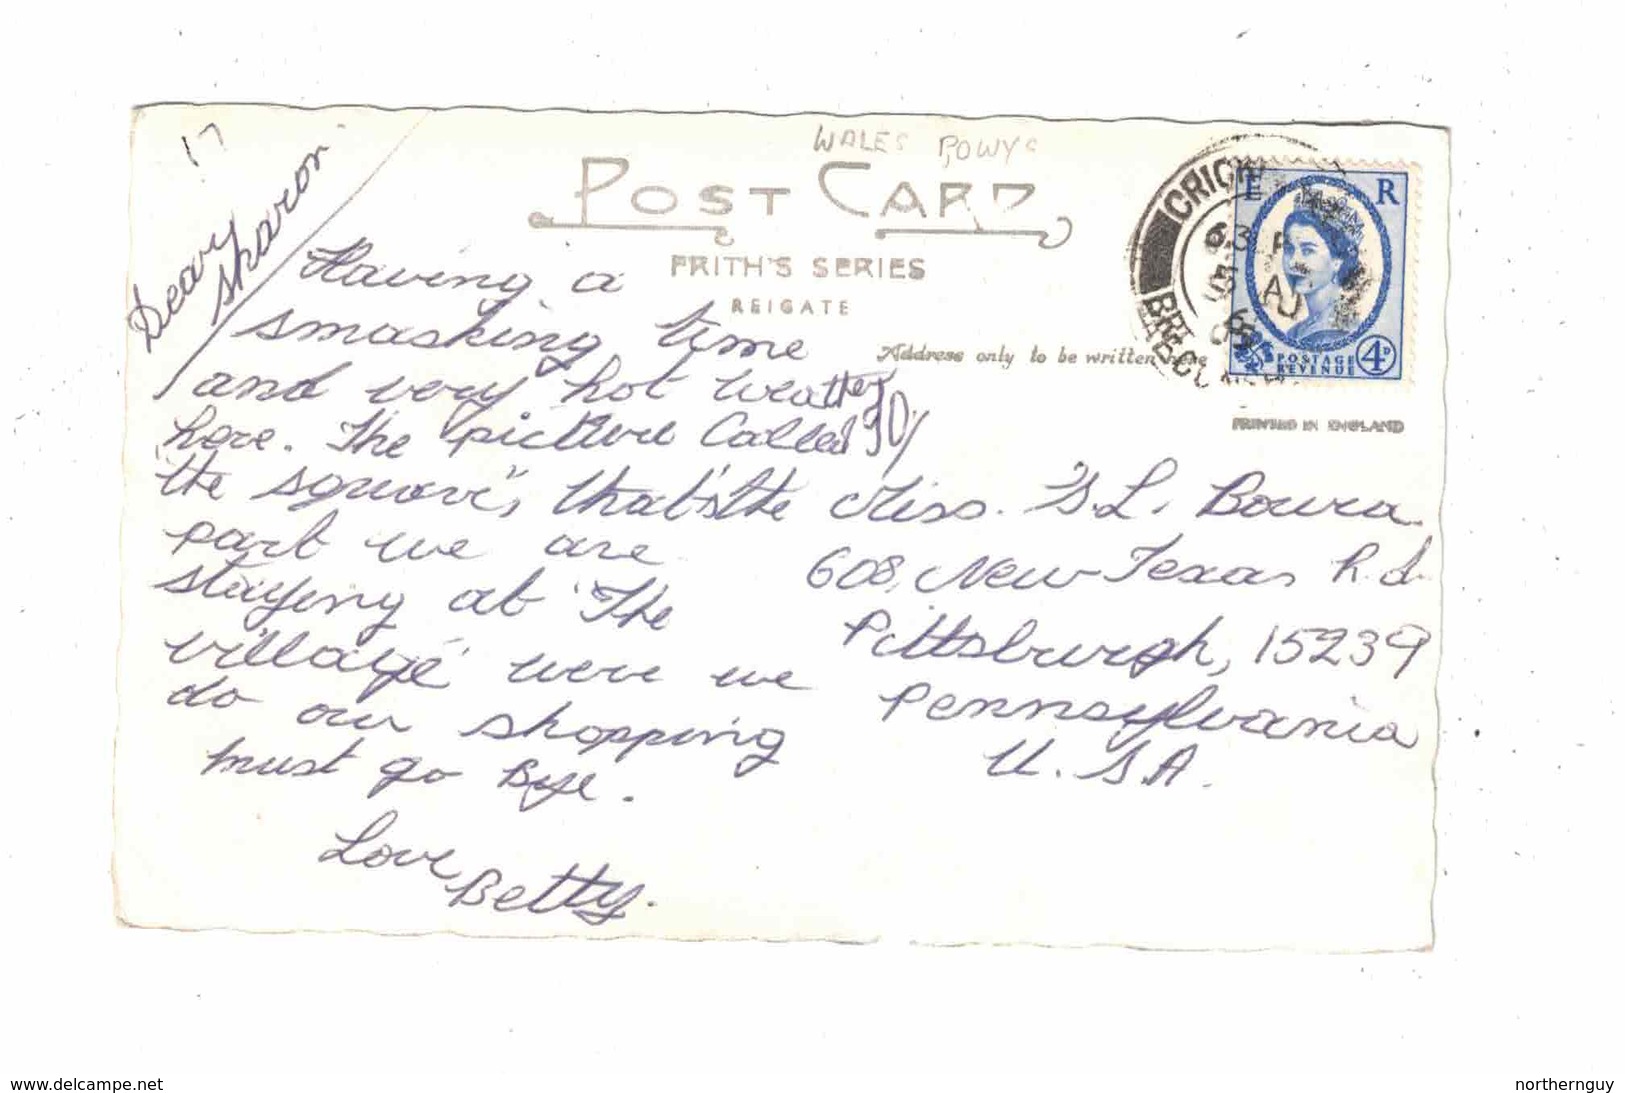 17
WALES POWYS
POST CARD
FRITH'S SERIES
REIGATE
Address only to be written
PRINTED IN ENGLAND
E R
POSTAGE
REVENUE
4D
Deary
Sharon
Having a
smasking time
and very hot weather
here. The picture Called
the square", that's the
part we are
staying at "The
village" were we
do our shopping
must go Bye.
Love
Betty.
Miss. S.L. Bowra
608, New Texas Rd
Pittsburgh, 15239
Pennsylvania
U.S.A.
www.delcampe.net
northernguy